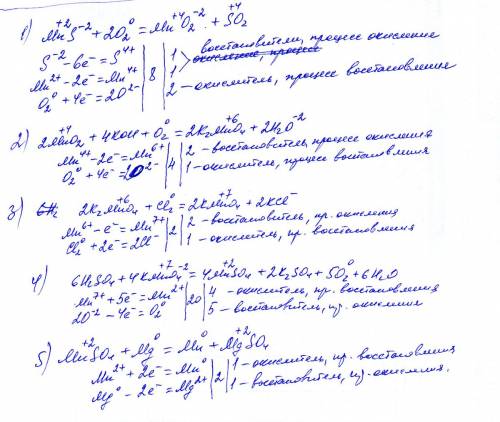 1) Mn⁺²S⁻² + 2O₂⁰ = Mn⁺⁴O₂⁻² + S⁺⁴O₂
S⁻² - 6e⁻ = S⁴⁺ | 8 | 1 > восстановители, процесс окисления
Mn²⁺ - 2e⁻ = Mn⁴⁺ | 1
O₂⁰ + 4e⁻ = 2O²⁻ | 2 - окислитель, процесс восстановления
2) 2Mn⁺⁴O₂ + 4KOH + O₂⁰ = 2K₂Mn⁺⁶O₄ + 2H₂O⁻²
Mn⁴⁺ - 2e⁻ = Mn⁶⁺ | 4 | 2 - восстановитель, процесс окисления
O₂⁰ + 4e⁻ = 2O²⁻ | 1 - окислитель, процесс восстановления
3) 2K₂Mn⁺⁶O₄ + Cl₂⁰ = 2KMn⁺⁷O₄ + 2KCl⁻
Mn⁶⁺ - e⁻ = Mn⁷⁺ | 2 | 2 - восстановитель, пр. окисления
Cl₂⁰ + 2e⁻ = 2Cl⁻ | 1 - окислитель, пр. восстановления
4) 6H₂SO₄ + 4KMn⁺⁷O₄⁻² = 4Mn⁺²SO₄ + 2K₂SO₄ + 5O₂⁰ + 6H₂O
Mn⁷⁺ + 5e⁻ = Mn²⁺ | 20 | 4 - окислитель, пр. восстановления
2O⁻² - 4e⁻ = O₂⁰ | 5 - восстановитель, пр. окисления
5) Mn⁺²SO₄ + Mg⁰ = Mn⁰ + Mg⁺²SO₄
Mn²⁺ + 2e⁻ = Mn⁰ | 2 | 1 - окислитель, пр. восстановления
Mg⁰ - 2e⁻ = Mg²⁺ | 1 - восстановитель, пр. окисления.